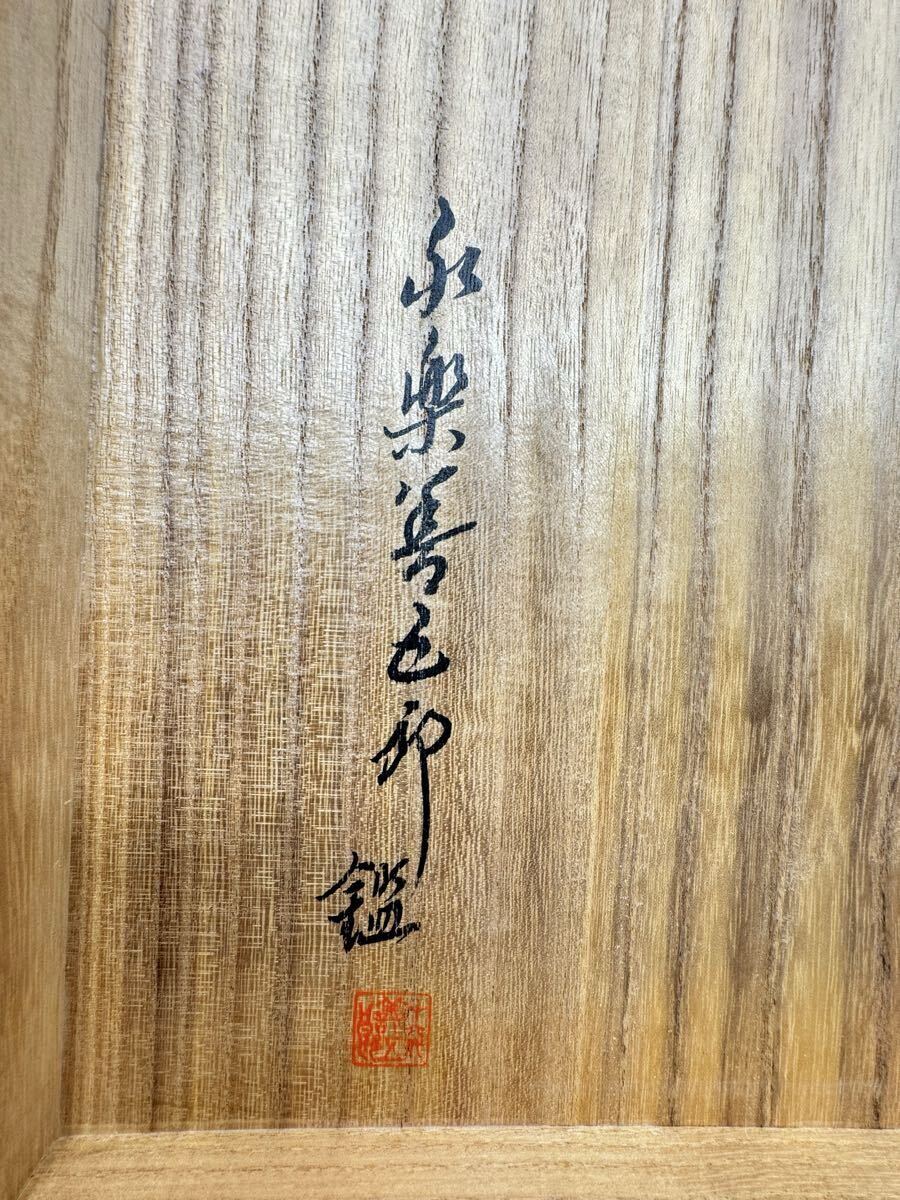 永樂善五郎
鑑